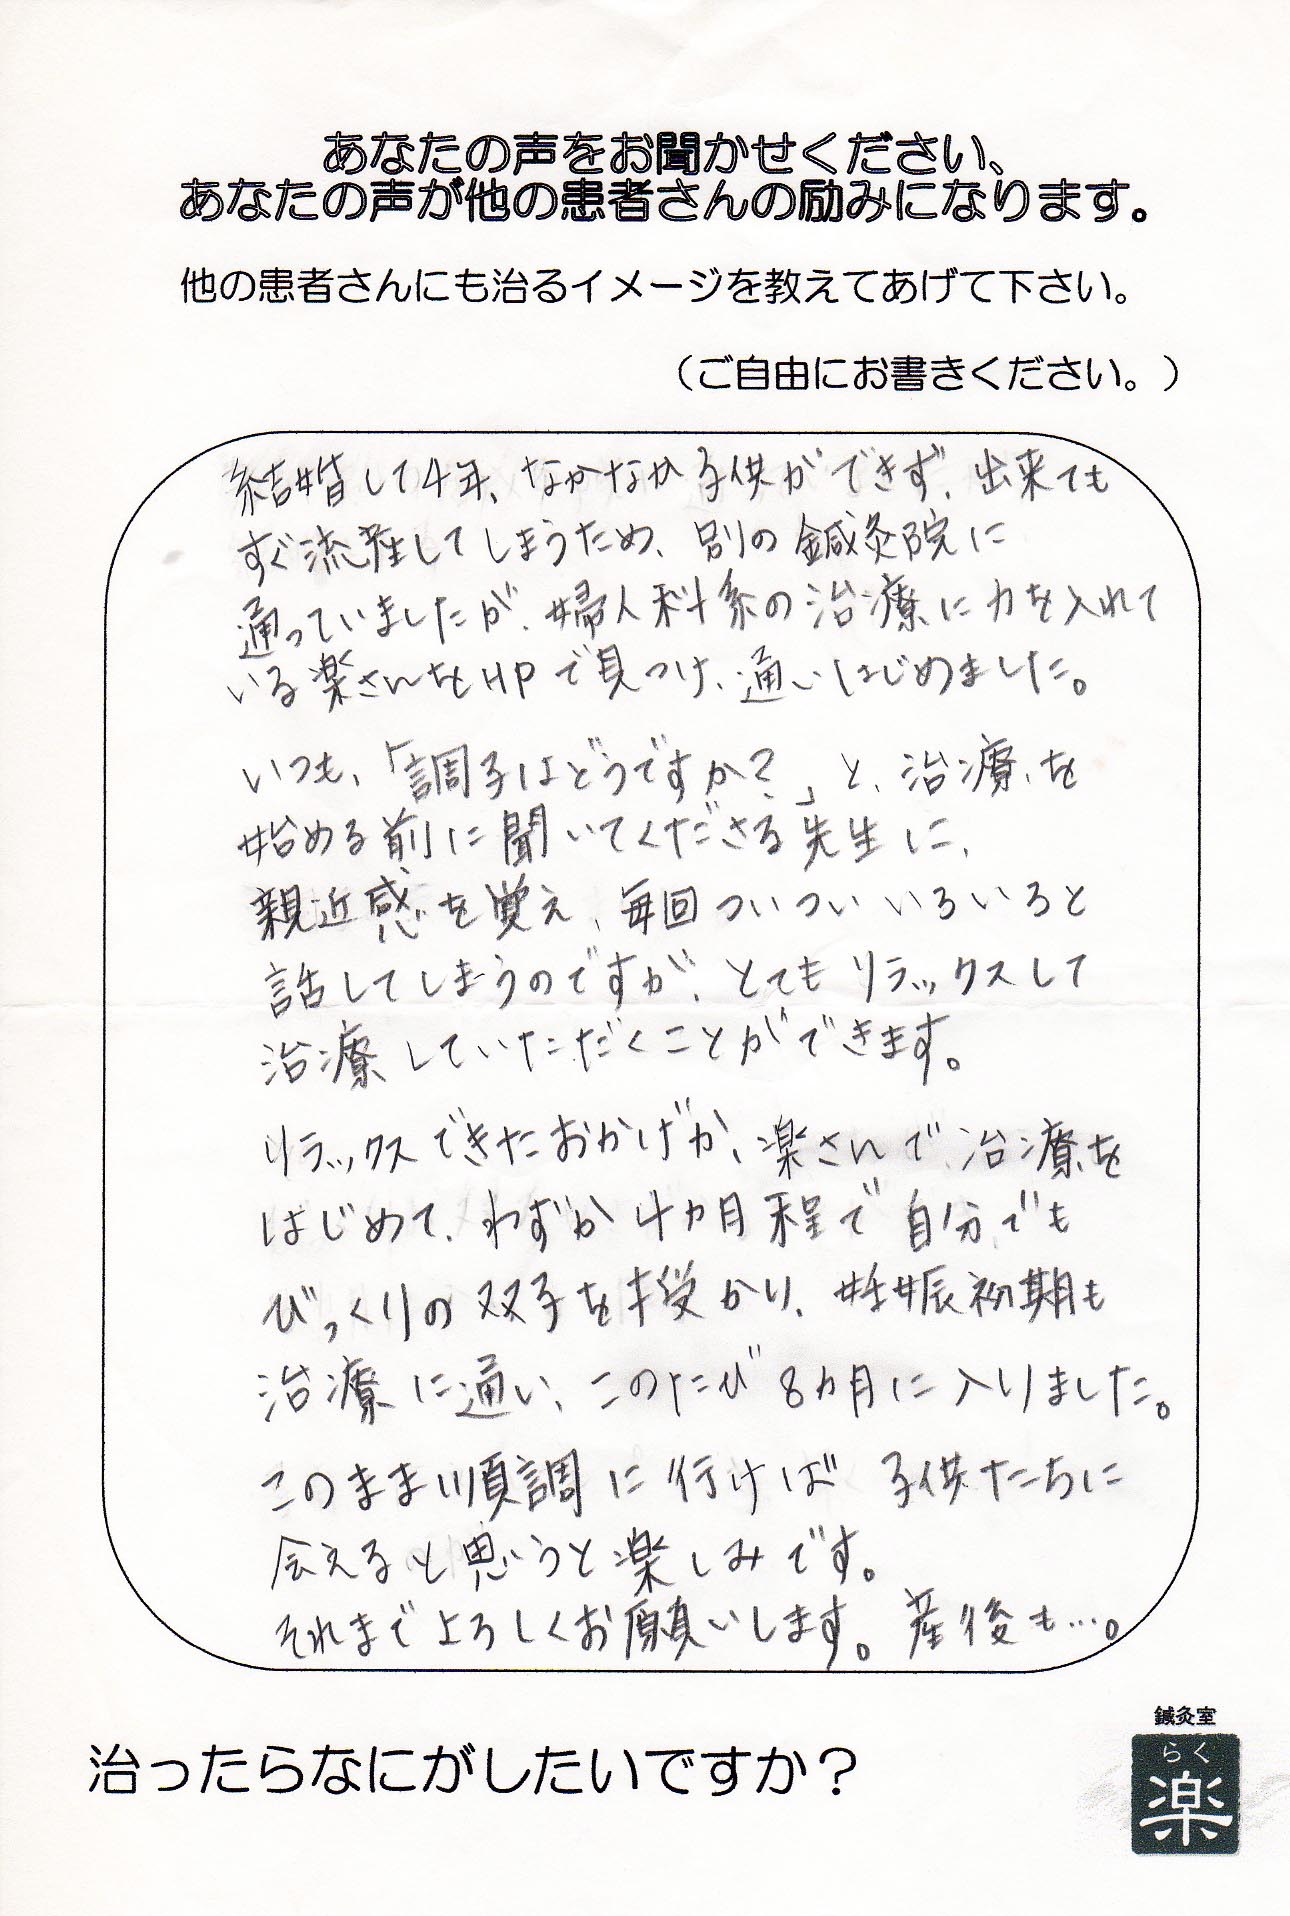 あなたの声をお聞かせください、
あなたの声が他の患者さんの励みになります。
他の患者さんにも治るイメージを教えてあげて下さい。
（ご自由にお書きください。）
結婚して4年、なかなか子供ができず、出来ても
すぐ流産してしまうため、別の鍼灸院に
通っていましたが、婦人科系の治療に力を入れて
いる楽さんをHPで見つけ、通いはじめました。
いつも、「調子はどうですか？」と、治療を
始める前に聞いてくださる先生に、
親近感を覚え、毎回ついついいろいろと
話してしまうのですが、とてもリラックスして
治療していただくことができます。
リラックスできたおかげか、楽さんで治療を
はじめて、わずか4カ月程で自分でも
びっくりの双子を授かり、妊娠初期も
治療に通い、このたび8カ月に入りました。
このまま順調に行けば子供たちに
会えると思うと楽しみです。
それまでよろしくお願いします。産後も…。
治ったらなにがしたいですか？
鍼灸室
らく
楽